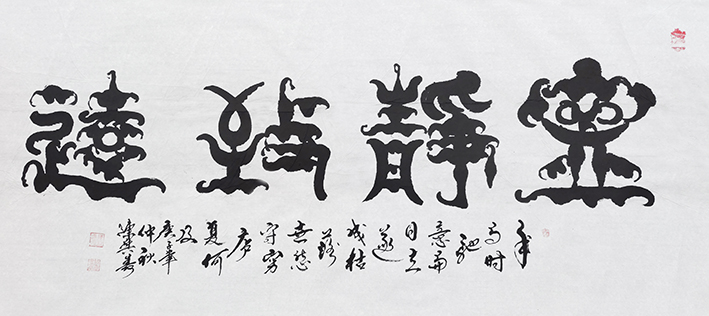 寧靜致遠
年
与时
驰
意与
日去
遂
成枯
落
悲
守穷
庐
复何
及
仲秋